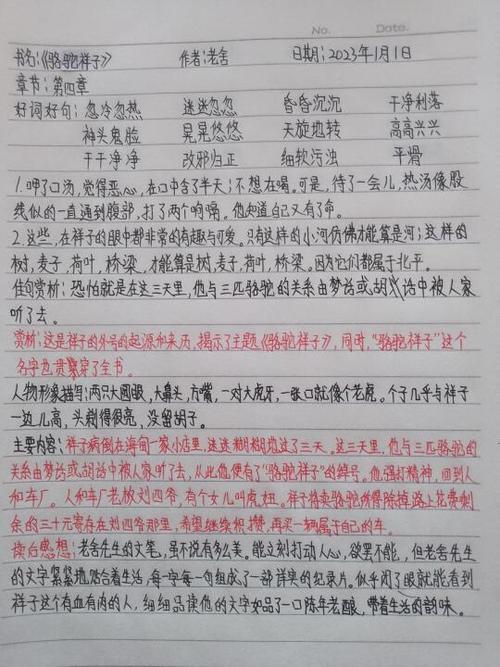 No.  Date.
书名:《骆驼祥子》 作者:老舍 日期:2023年1月1日
章节:第四章
好词好句:忽冷忽热 迷迷忽忽 昏昏沉沉 干净利落
神头鬼脸 晃晃悠悠 天旋地转 高高兴兴
干干净净 改邪归正 细软污浊 平滑
1.呷了口汤,觉得恶心,在口中含了半天;不想在喝。可是,待了一会儿,热汤像股
线似的一直通到腹部,打了两个响嗝。他知道自己又有了命。
2.这些,在祥子的眼中都非常的有趣与可爱。只有这样的小河仿佛才能算是河;这样的
树,麦子,荷叶,桥梁,才能算是树,麦子,荷叶,桥梁。因为它们都属于北平。
佳句赏析:恐怕就是在这三天里,他与三匹骆驼的关系由梦话或胡话中被人家
听了去。
赏析:这是祥子的外号的起源和来历,揭示了主题《骆驼祥子》,同时,“骆驼祥子”这个
名字也贯穿了全书。
人物形象描写:两只大圆眼,大鼻头,方嘴,一对大虎牙,一张口就像个老虎。个子几乎与祥子
一边儿高,头剃得很亮,没留胡子。
主要内容:祥子病倒在海甸一家小店里,迷迷糊糊地过了三天。这三天里,他与三匹骆驼的
关系由梦话或胡话中被人家听了去,从此他便有了“骆驼祥子”的绰号。他强打精神,回到人
和车厂。人和车厂老板刘四爷,有个女儿叫虎妞。祥子将卖骆驼所得除掉路上花费剩
余的三十元寄存在刘四爷那里,希望继续积攒,再买一辆属于自己的车。
读后感想:老舍先生的文笔,虽不说有多么美。能立刻打动人心,欲罢不能,但老舍先生
的文字紧紧地贴合着生活,每一字每一句组成了一部详实的纪录片。似乎闭了眼就能看到
祥子这个有血有肉的人,细细品读他的文字如品了一口陈年老酿,带着生活的韵味。